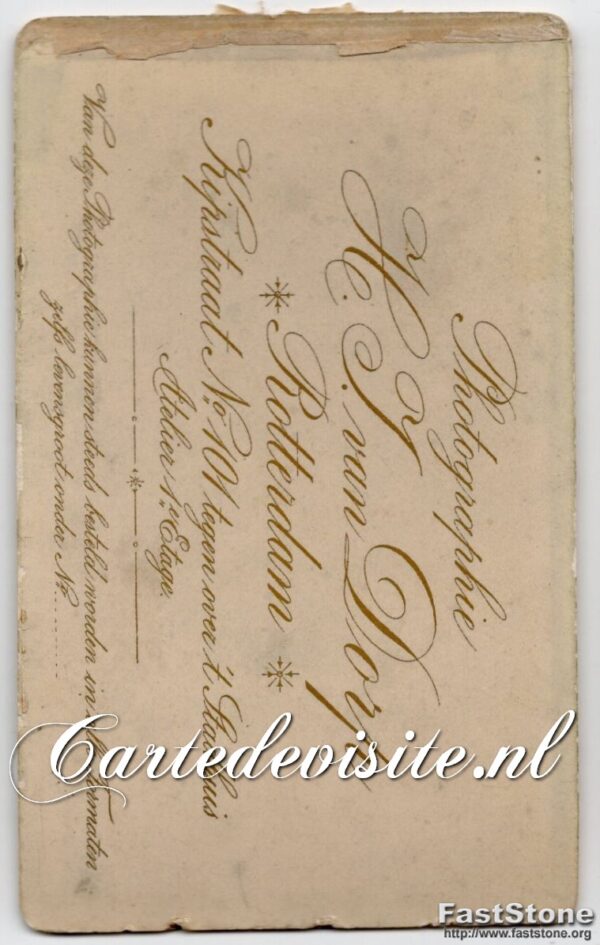 Photographie
H. J. van Dorp
Rotterdam
Kipstraat No. 101 tegen over 't Stadhuis
Atelier 1e Etage.
Van deze Photographie kunnen steeds besteld worden in alle formaten
zelfs levensgroot onder No..........
Cartedevisite.nl
FastStone
http://www.faststone.org